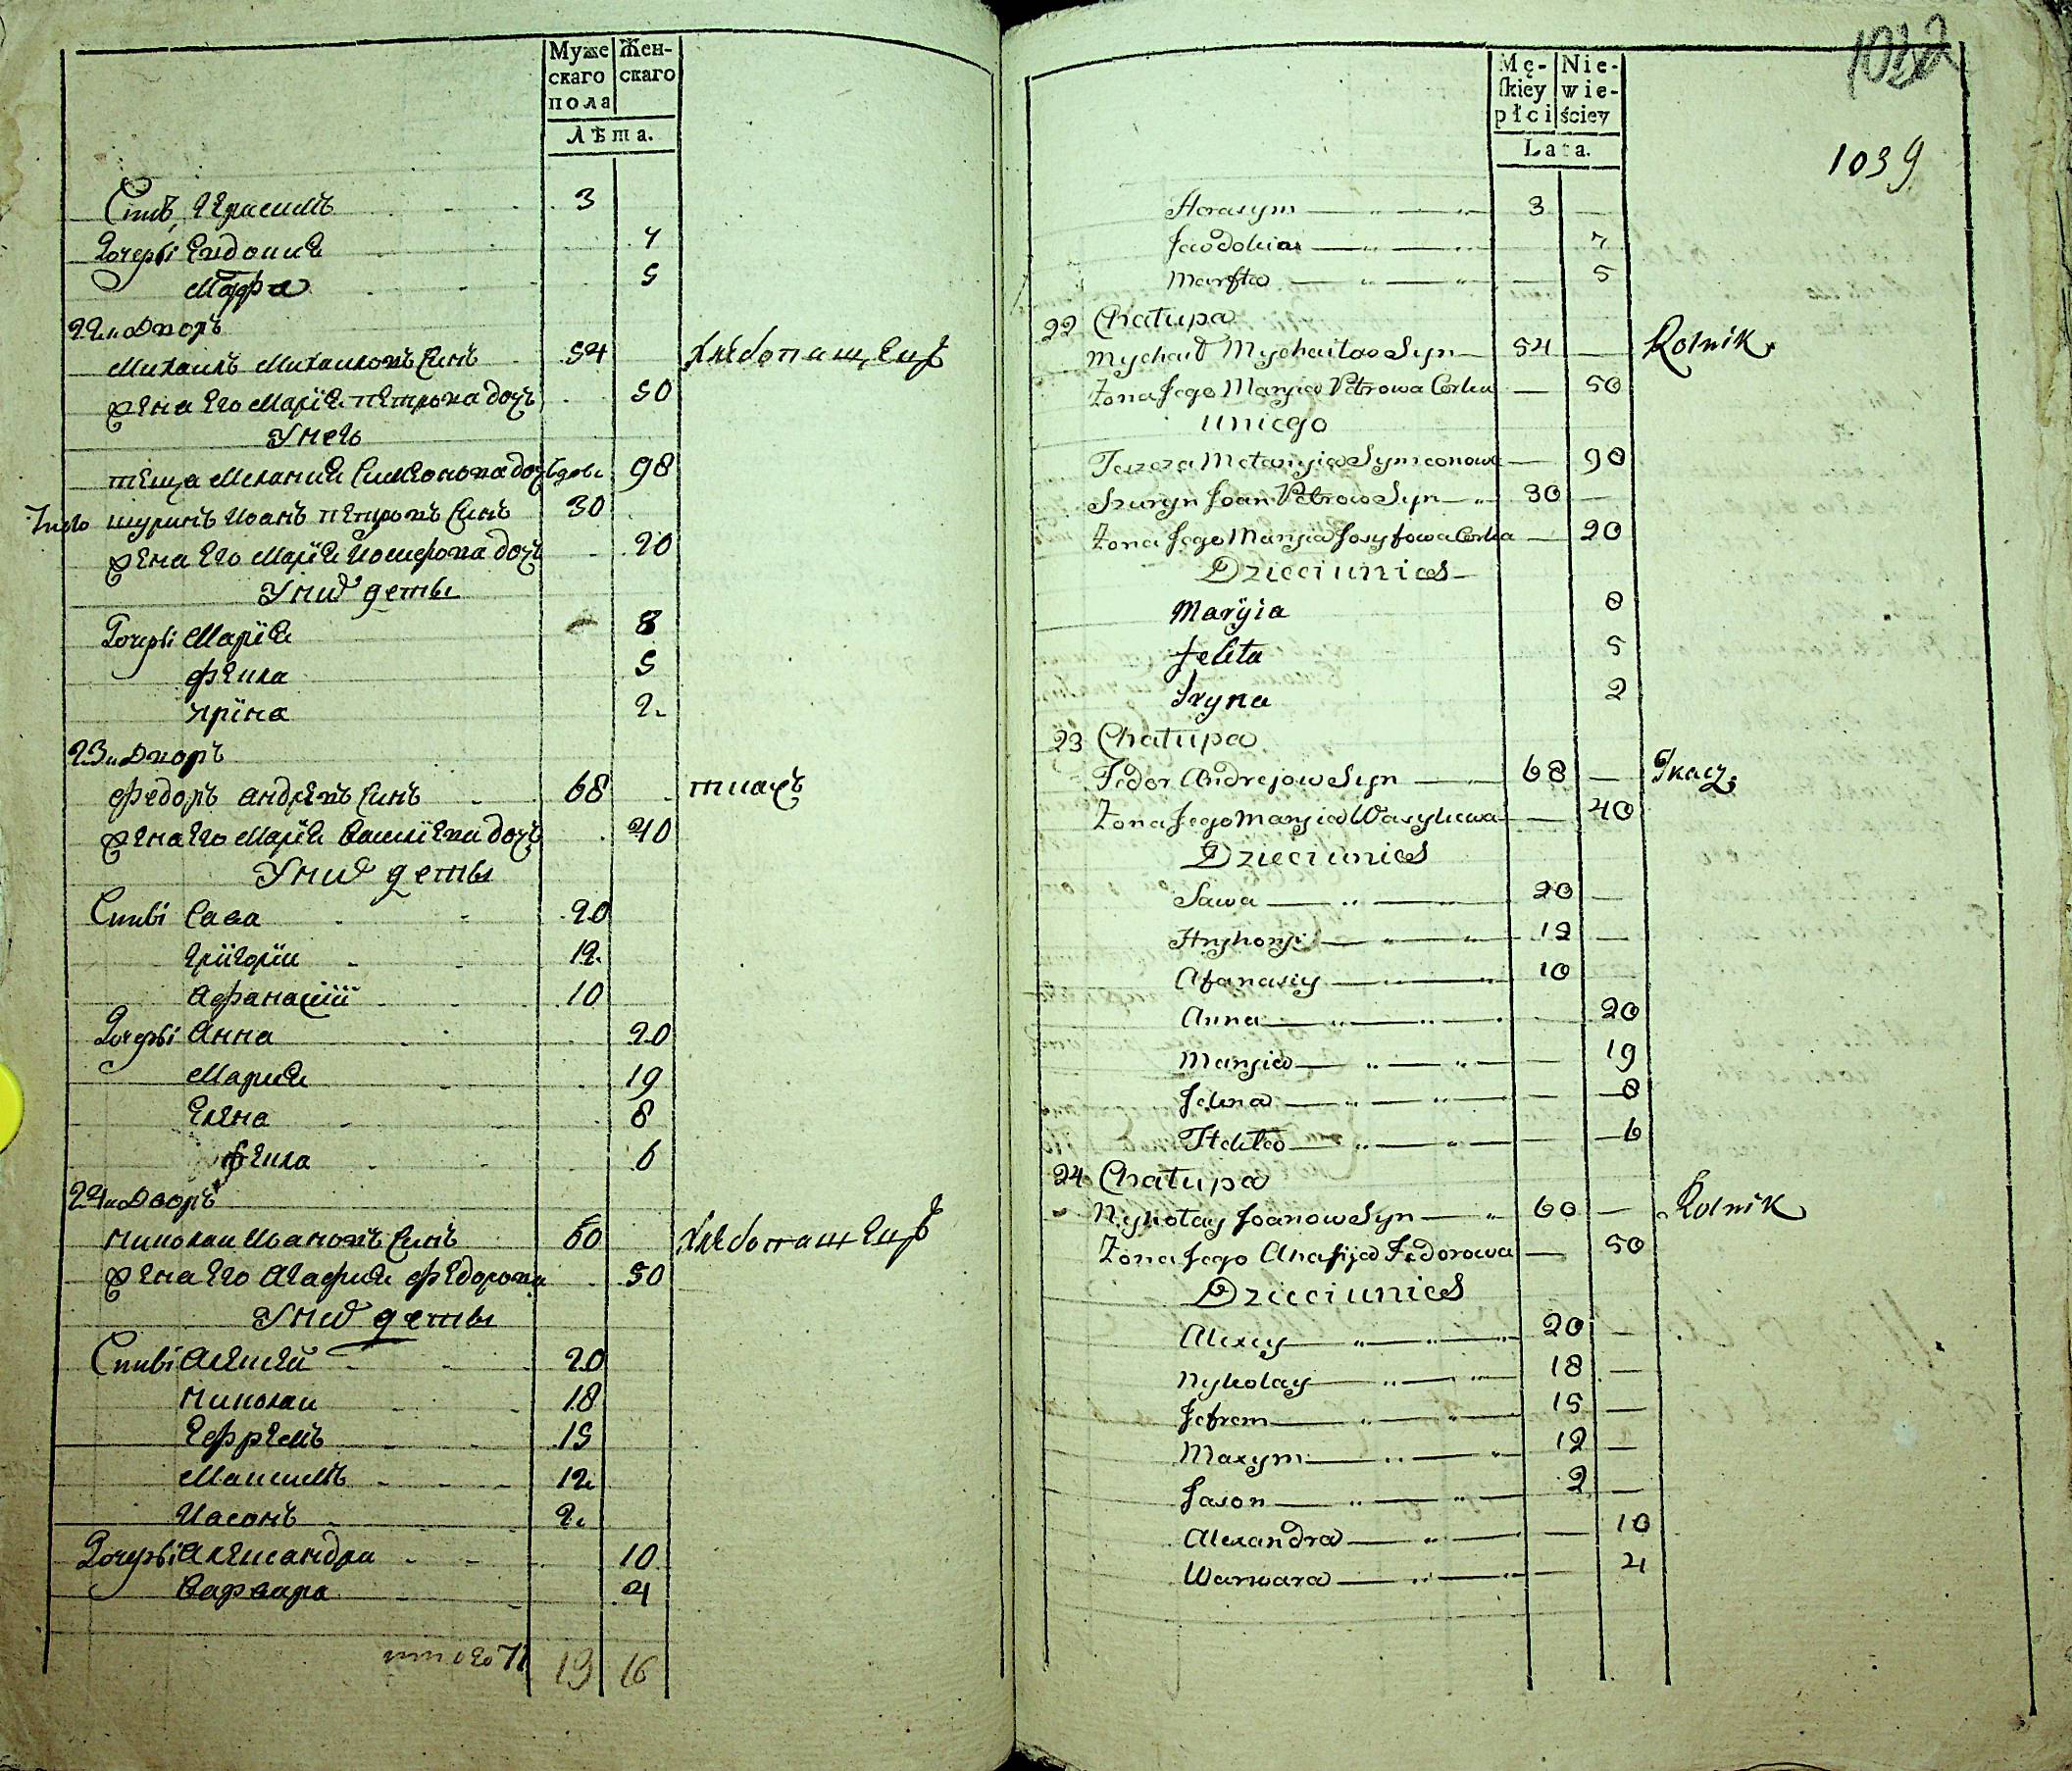 Муже
скаго
пола
Жен-
скаго
Лѣта.
Сынъ Герасимъ 3
Дочери Евдокиѧ 7
Марфа 5
22й Дворъ
Михаилъ Михаиловъ Синъ 54 Хлебопашецъ
Жена Его Мариѧ Петрова дочь 50
У него
теща Меланиѧ Симеонова дочь вдова 98
шуринъ Иоанъ Петровъ Синъ 30
Жена Его Мариѧ Иосифова дочь 20
У них дети
Дочери Мариѧ 8
Фекла 5
Ирина 2
23й Дворъ
Федоръ Андреевъ Синъ 68 ткачъ
Жена Его Мариѧ Василиева дочь 40
У них дети
Сини Сава 20
Григорий 12
Афанасий 10
Дочери Анна 20
Мариѧ 19
Елена 8
Фекла 6
24й Дворъ
Николай Ивановъ Синъ 60 Хлебопашецъ
Жена Его Агафиѧ Федорова 50
У них дети
Сини Алексей 20
Николай 18
Ефремъ 15
Максимъ 12
Иасонъ 2
Дочери Александра 10
Варвара 4
13 16
Mę-
skiey
płci
Nie-
wie-
ściey
Lata.
1039
Harasym 3
Jewdokia 7
Marfta 5
22 Chałupa
Mychaił Mychaiłow Syn 54 Rolnik
Żona Jego Maryia Petrowa Corka 50
u niego
Teszcza Mełanyia Symeonowa 90
Szuryn Joan Petrow Syn 30
Żona Jego Maryia Josyfowa Corka 20
Dzieci u nich
Maryia 8
Fekła 5
Iryna 2
23 Chałupa
Fedor Andrejow Syn 68 Tkacz
Żona Jego Maryia Wasylewa 40
Dzieci u nich
Sawa 20
Hryhoryi 12
Afanasiy 10
Anna 20
Maryia 19
Jelena 8
Ftekła 6
24 Chałupa
Nykołay Joanow Syn 60 Rolnik
Żona Jego Ahafija Fedorowa 50
Dzieci u nich
Alexey 20
Nykołay 18
Jefrem 15
Maxym 12
Jason 2
Alexandra 10
Warwara 4